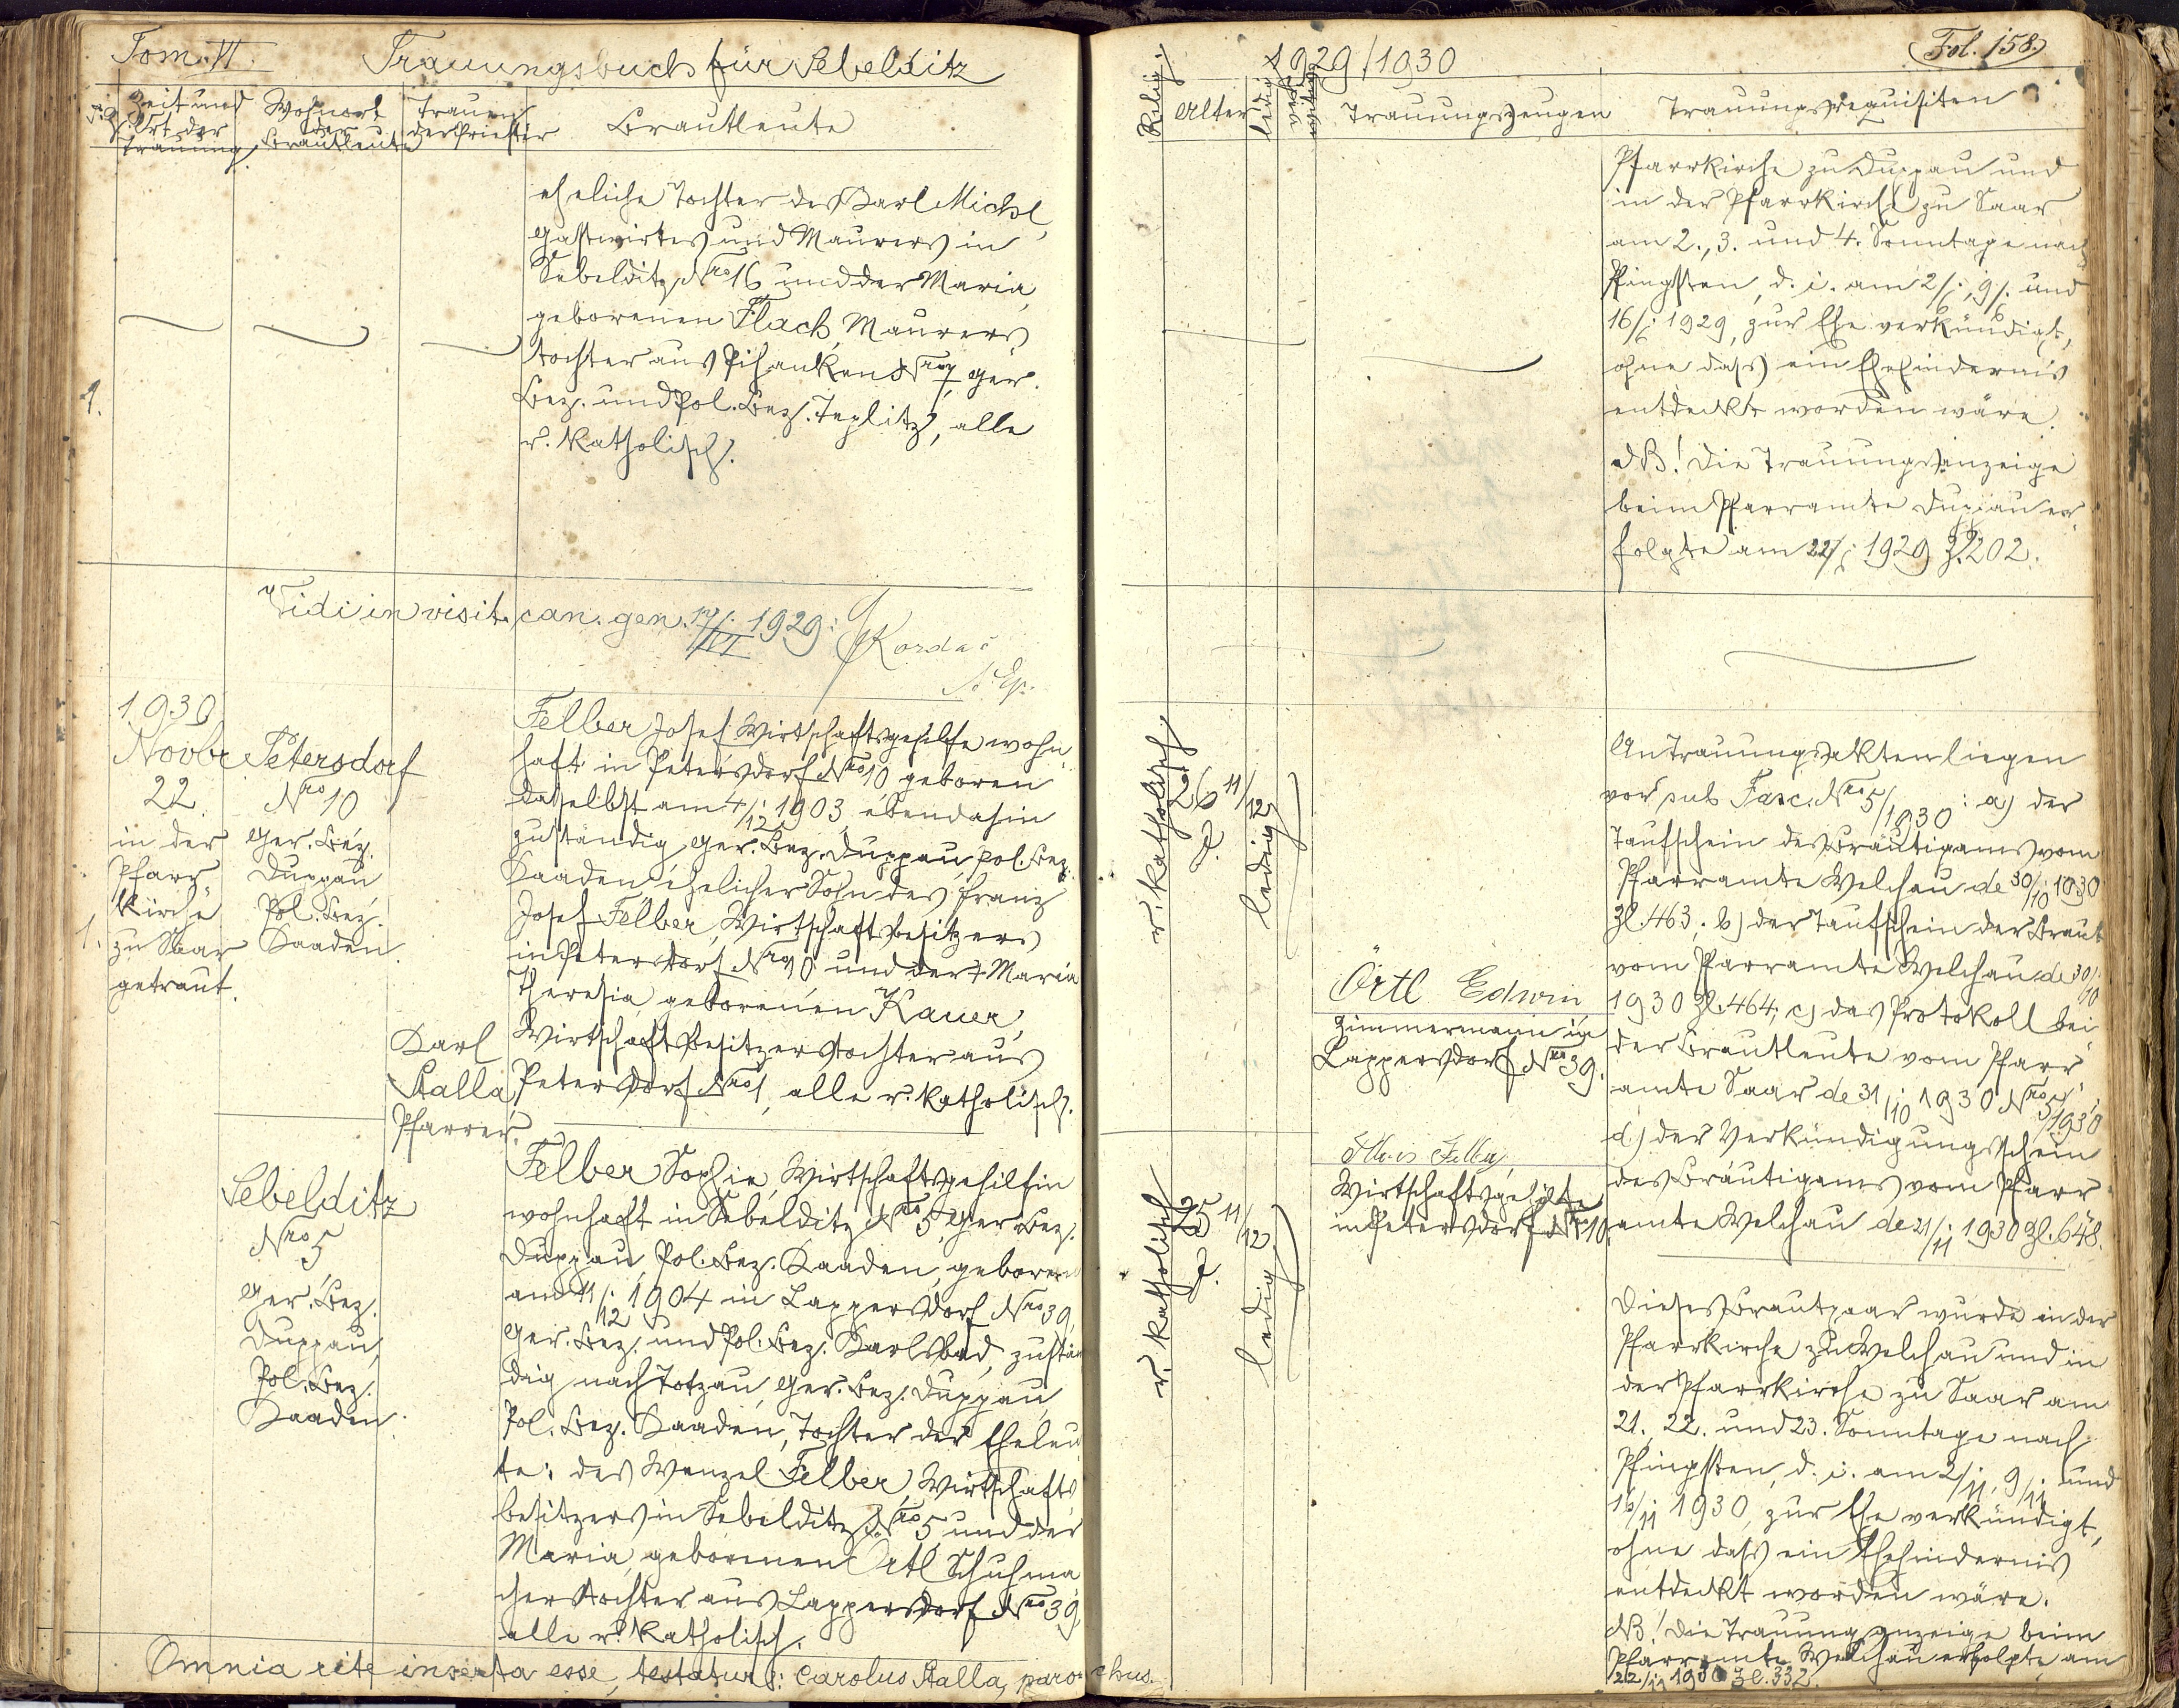 Tom. VI. Trauungsbuch für Sebelditz
Zeit und Ort der Trauung.
Wohnort der Brautleute
Trauender Priester
Brautleute
eheliche Tochter des Karl Michl,
Gastwirtes und Maurers in
Sebelditz Nro 16 und der Maria,
geborenen Flach, Maurers
tochter aus Pihanken Nro 7, Ger.
Bez. und Pol. Bez. Teplitz, alle
r. katholisch.
1.
Vidi in visit. can. gen. 1929: Kordač
1930
Novbr
22.
in der
Pfarr-
kirche
zu Saar
getraut.
1.
Petersdorf
Nro 10
Ger. Bez.
Duppau
Pol. Bez.
Kaaden.
Karl
Stalla
Pfarrer.
Felber Josef, Wirtschaftsgehilfe wohn-
haft in Petersdorf Nro 10, geboren
daselbst am 4/12 1903, ebendahin
zuständig, Ger. Bez. Duppau, pol. Bez.
Kaaden, ehelicher Sohn des Franz
Josef Felber, Wirtschaftsbesitzers
in Petersdorf Nro 10 und der + Maria
Theresia, geborenen Kauer,
Wirtschaftsbesitzerstochter aus
Petersdorf Nro 1, alle r. katholisch.
Sebelditz
Nro 5
Ger. Bez.
Duppau,
Pol. Bez.
Kaaden.
Felber Sophie, Wirtschaftsgehilfin
wohnhaft in Sebelditz Nro 5, Ger. Bez.
Duppau, Pol. Bez. Kaaden, geboren
am 11/12 1904 in Lappersdorf Nro 39,
Ger. Bez. und Pol. Bez. Karlsbad, zustän
dig nach Totzau, Ger. Bez. Duppau,
Pol. Bez. Kaaden, Tochter der Eheleu
te: des Wenzel Felber, Wirtschafts
besitzers in Sebelditz Nro 5 und der
Maria, geborenen Örtl, Schuhma
cherstochter aus Lappersdorf Nro 39,
alle r. katholisch.
Omnia rite inserta esse, testatur: Carolus Stalla, parochus.
1929/1930
Fol. 158.
Relig.
Alter
ledig
Trauungszeugen
Trauungsrequisiten
Pfarrkirche zu Duppau und
in der Pfarrkirche zu Saar
am 2., 3. und 4. Sonntage nach
Pfingsten, d. i. am 2/6, 9/6 und
16/6 1929, zur Ehe verkündigt,
ohne dass ein Ehehindernis
entdeckt worden wäre.
NB! Die Trauungsanzeige
beim Pfarramte Duppau er-
folgte am 22/6 1929 Z. 202.
r. katholisch
26 11/12
J.
ledig
Örtl Edwin
Zimmermann in
Lappersdorf Nro 39.
r. katholisch
25 11/12
J.
ledig
Alois Felber,
Wirtschaftsgehilfe
in Petersdorf Nro 10.
An Trauungsakten liegen
vor sub Fasc. Nro 5/1930: a) der
Taufschein des Bräutigams vom
Pfarramte Welchau de 30/10 1930
Zl. 463; b) der Taufschein der Braut
vom Pfarramte Welchau de 30/10
1930 Zl. 464; c) das Protokoll bei-
der Brautleute vom Pfarr-
amte Saar de 31/10 1930 Nro 5/1930
d.) der Verkündigungsschein
des Bräutigams vom Pfarr-
amte Welchau de 21/11 1930 Zl. 648.
Dieses Brautpaar wurde in der
Pfarrkirche zu Welchau und in
der Pfarrkirche zu Saar am
21., 22. und 23. Sonntage nach
Pfingsten, d. i. am 2/11, 9/11 und
16/11 1930, zur Ehe verkündigt,
ohne dass ein Ehehindernis
entdeckt worden wäre.
NB! Die Trauungsanzeige beim
Pfarramte Welchau erfolgte am
22/11 1930 Zl. 332.